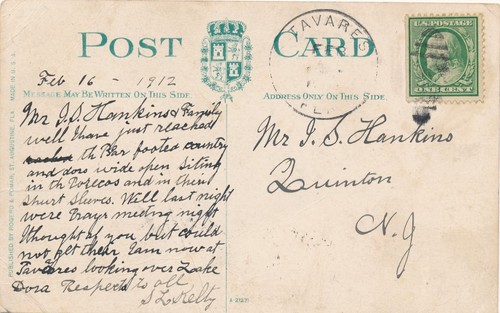 POST CARD
Feb 16 - 1912
MESSAGE MAY BE WRITTEN ON THIS SIDE
ADDRESS ONLY ON THIS SIDE
MADE IN U.S.A.
PUBLISHED BY ST. AUGUSTINE, FLA.
TAVARES
FLA.
U.S. POSTAGE
ONE CENT
Mr J. S. Hankins & Family
well I have just reached
th Bar footed country
and dors wide open siting
in th and in their
Shurt Sleves. Well last night
were Prayr meeting night
thought of you, but could
not get their I am now at
Tavares looking over Lake
Dora Respects to all
S L Kelty
Mr J. S. Hankins
Quinton
N. J